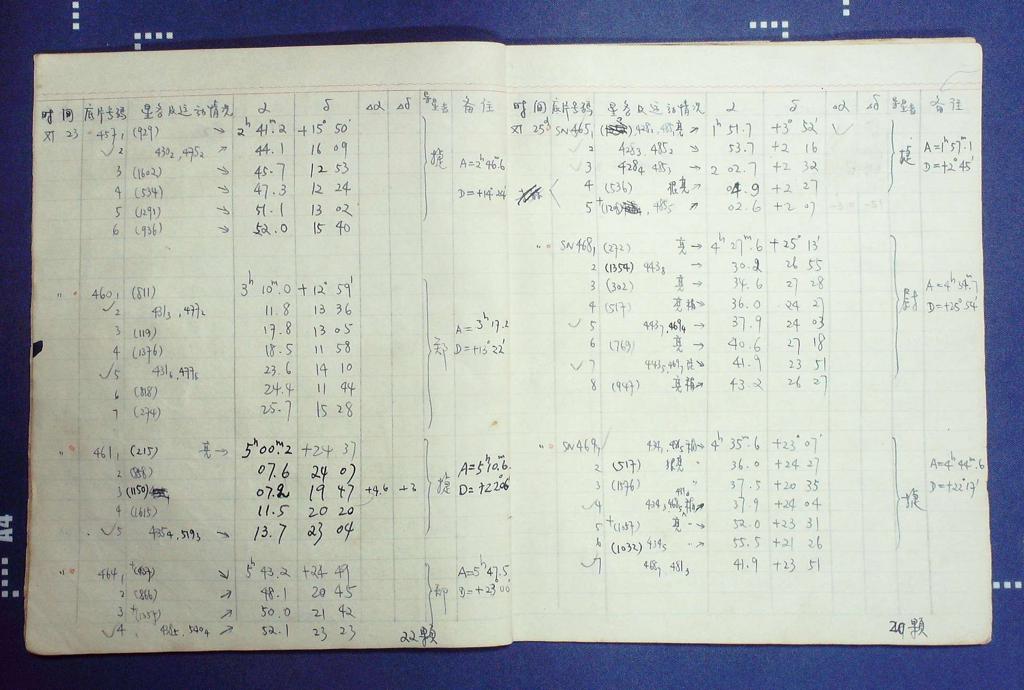 时间 底片号码 星名及运动情况 α δ Δα Δδ 量星者 备注
23 457₁ (929) → 2ʰ 41ᵐ.2 +15° 50′
✓2 430₂, 475₂ 44.1 16 09 捷
3 (1602) → 45.7 12 53 A=2ʰ46ᵐ.6
4 (534) → 47.3 12 24 D=+14°24′
5 (1291) → 51.1 13 02
6 (936) → 52.0 15 40
〃 460₁ (811) 3ʰ 10ᵐ.0 +12° 59′
✓2 431₃, 477₂ 11.8 13 36
3 (119) 17.8 13 05 A=3ʰ17.2
4 (1376) 18.5 11 58 郑 D=+13°22′
✓5 431₆, 477₅ 23.6 14 10
6 (818) 24.4 11 44
7 (274) 25.7 15 28
〃 461₁ (215) 亮→ 5ʰ 00ᵐ.2 +24 37
2 (858) 07.6 24 07 A=5ʰ10ᵐ.6
3 (1150) 07.2 19 47 +4.6 +3 捷 D=+22°06′
4 (1615) 11.5 20 20
✓5 435₄, 519₃ 13.7 23 04
〃 464₁ ↘ 5ʰ 43.2 +24 49 A=5ʰ47.5
2 (866) ↘ 48.1 20 45 郑 D=+23°00
3 → 50.0 21 42
✓4 ↗ 52.1 23 23
22颗
时间 底片号码 星名及运动情况 α δ Δα Δδ 量星者 备注
25ᵈ SN465₁ 亮 1ʰ 51.7 +3° 52′ ✓
✓2 428₃, 485₂ 53.7 +2 16 捷 A=1ʰ57ᵐ.1
✓3 428₄ 485₃ → 2 02.7 +2 32 D=+2°45′
4 (536) 很亮→ 04.9 +2 27
5 485₅ 02.6 +2 07
〃 SN468₁ (272) 亮→ 4ʰ 27ᵐ.6 +25° 13′
2 (1354) 443₈ → 30.2 26 55
3 (302) 亮→ 34.6 27 28 A=4ʰ34ᵐ.7
4 (517) 亮稍→ 36.0 24 27 D=+25°54′
✓5 443₇, 469₄ → 37.9 24 03
6 (769) 亮→ 40.6 27 18
✓7 41.9 23 51
8 (947) 亮稍→ 43.2 26 27
〃 SN469₁ 4ʰ 35ᵐ.6 +23° 07′
2 (517) 很亮 36.0 +24 27 A=4ʰ44ᵐ.6
3 (1176) 37.5 +20 35 捷 D=+22°17′
✓4 37.9 +24 04
5 亮 52.0 +23 31
6 (1032) 434₅ 55.5 +21 26
✓7 468₇ 481₃ 41.9 +23 51
颗